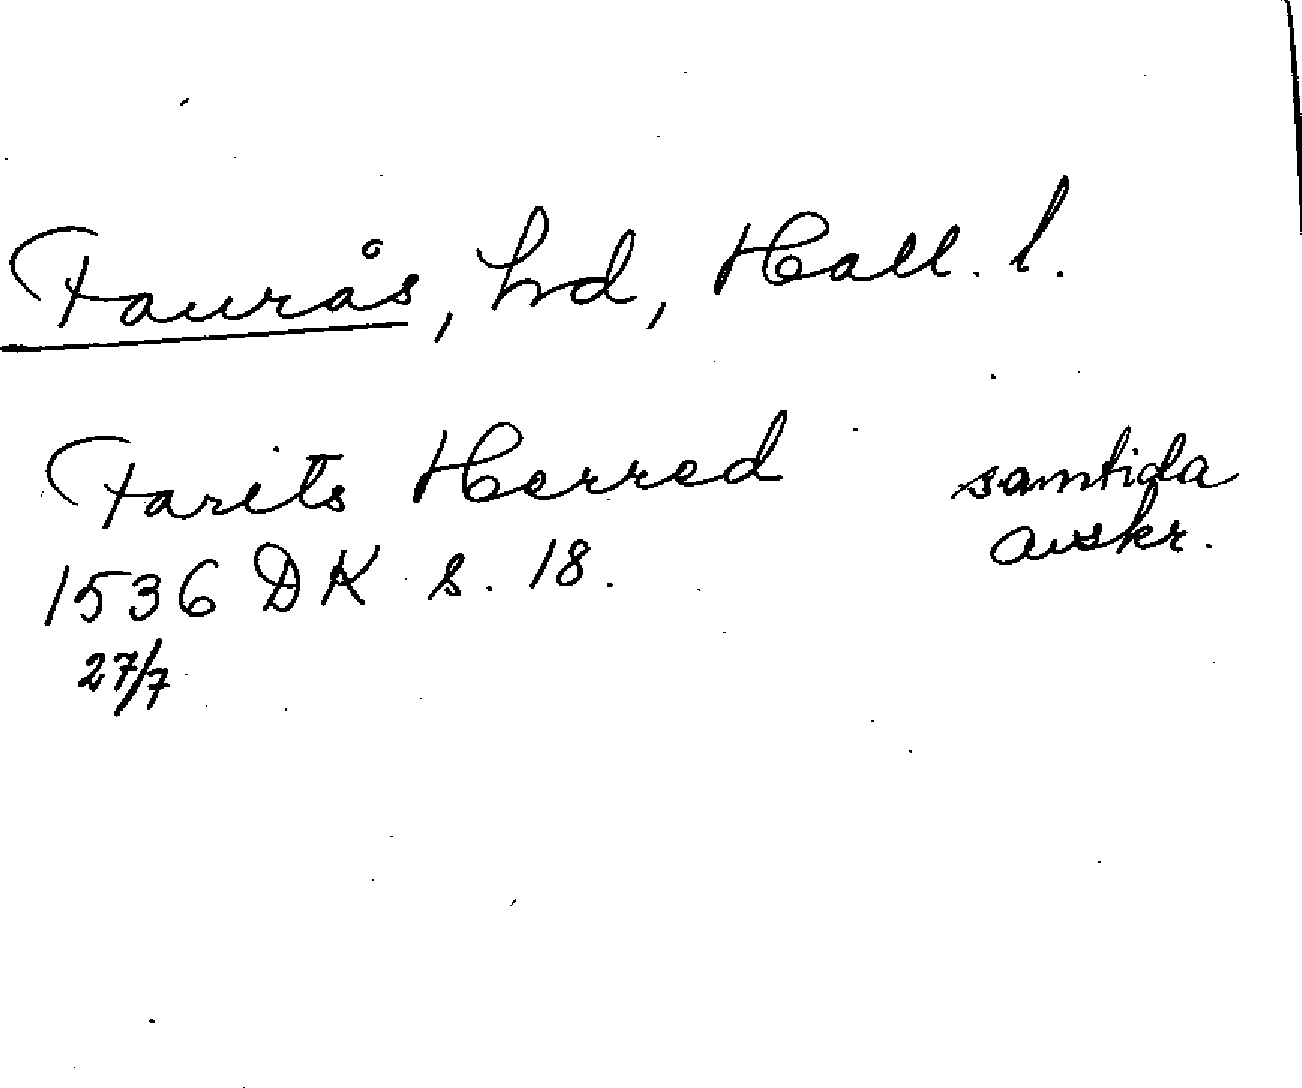 Faurås, hd, Hall. l.
Farits Herred
samtida
avskr.
1536 DK s. 18.
27/7